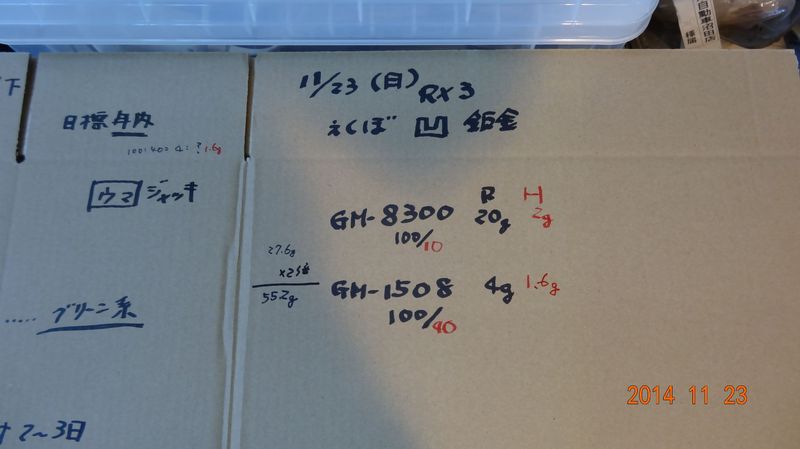 自動車沼田店
種属
下
目標 年内
100:40=4:? 1.6g
ウマ ジャッキ
..... グリーン系
オ 2~3日
11/23 (日) RX3
えくぼ 凹 鈑金
R H
GM-8300 20g 2g
100/10
27.6g
×2倍
55.2g
GM-1508 4g 1.6g
100/40
2014 11 23